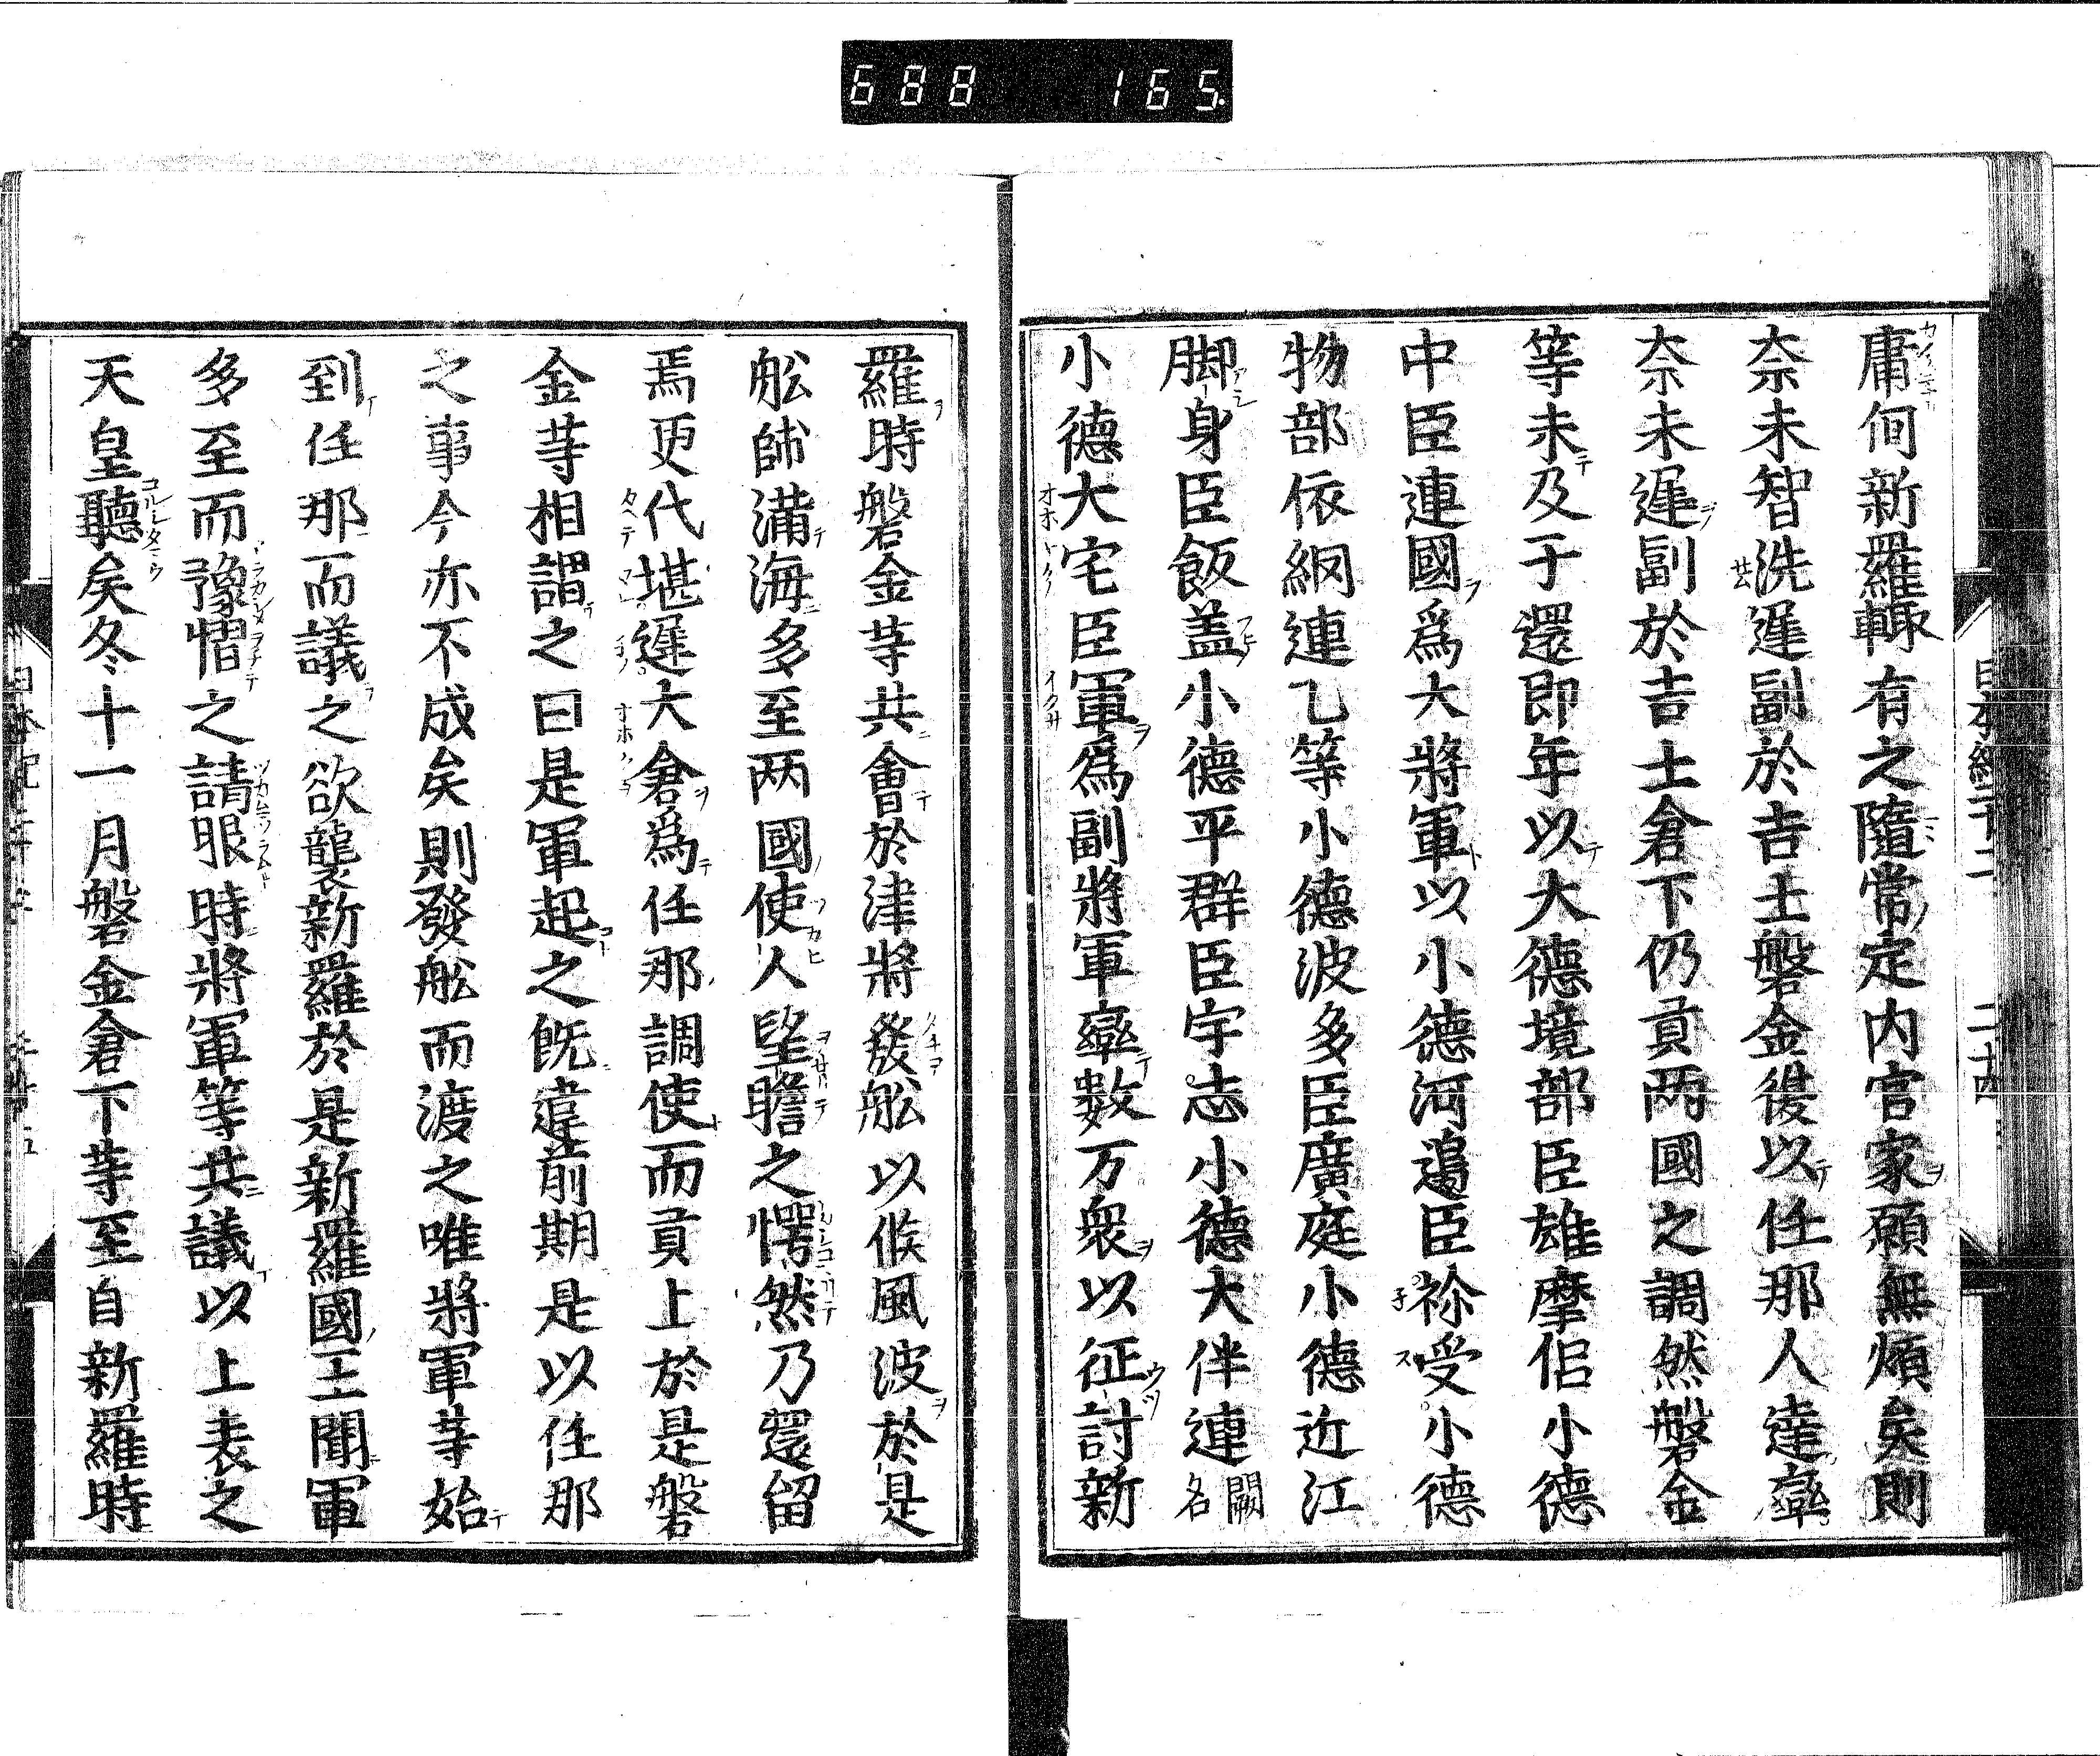 688 165
庸何新羅輙有之隨常定内官家願無煩矣則
奈未智洗遲副於吉士磐金復以任那人達率
奈未遲副於吉士倉下仍貢兩國之調然磐金
等未及于還即年以大德境部臣雄摩侶小德
中臣連國爲大將軍以小德河邊臣祢受小德
物部依網連乙等小德波多臣廣庭小德近江
脚身臣飯盖小德平群臣宇志小德大伴連闕名
小德大宅臣軍爲副將軍率數万衆以征討新
羅時磐金䓁共會於津將發舩以候風波於是
舩師滿海多至两國使人望瞻之愕然乃還留
焉更代堪遲大倉爲任那調使而貢上於是磐
金䓁相謂之曰是軍起之旣違前期是以任那
之事今亦不成矣則發舩而渡之唯將軍䓁始
到任那而議之欲襲新羅於是新羅國王聞軍
多至而豫慴之請服時將軍等共議以上表之
天皇聽矣冬十一月磐金倉下䓁至自新羅時
日本紀二十二 二十四